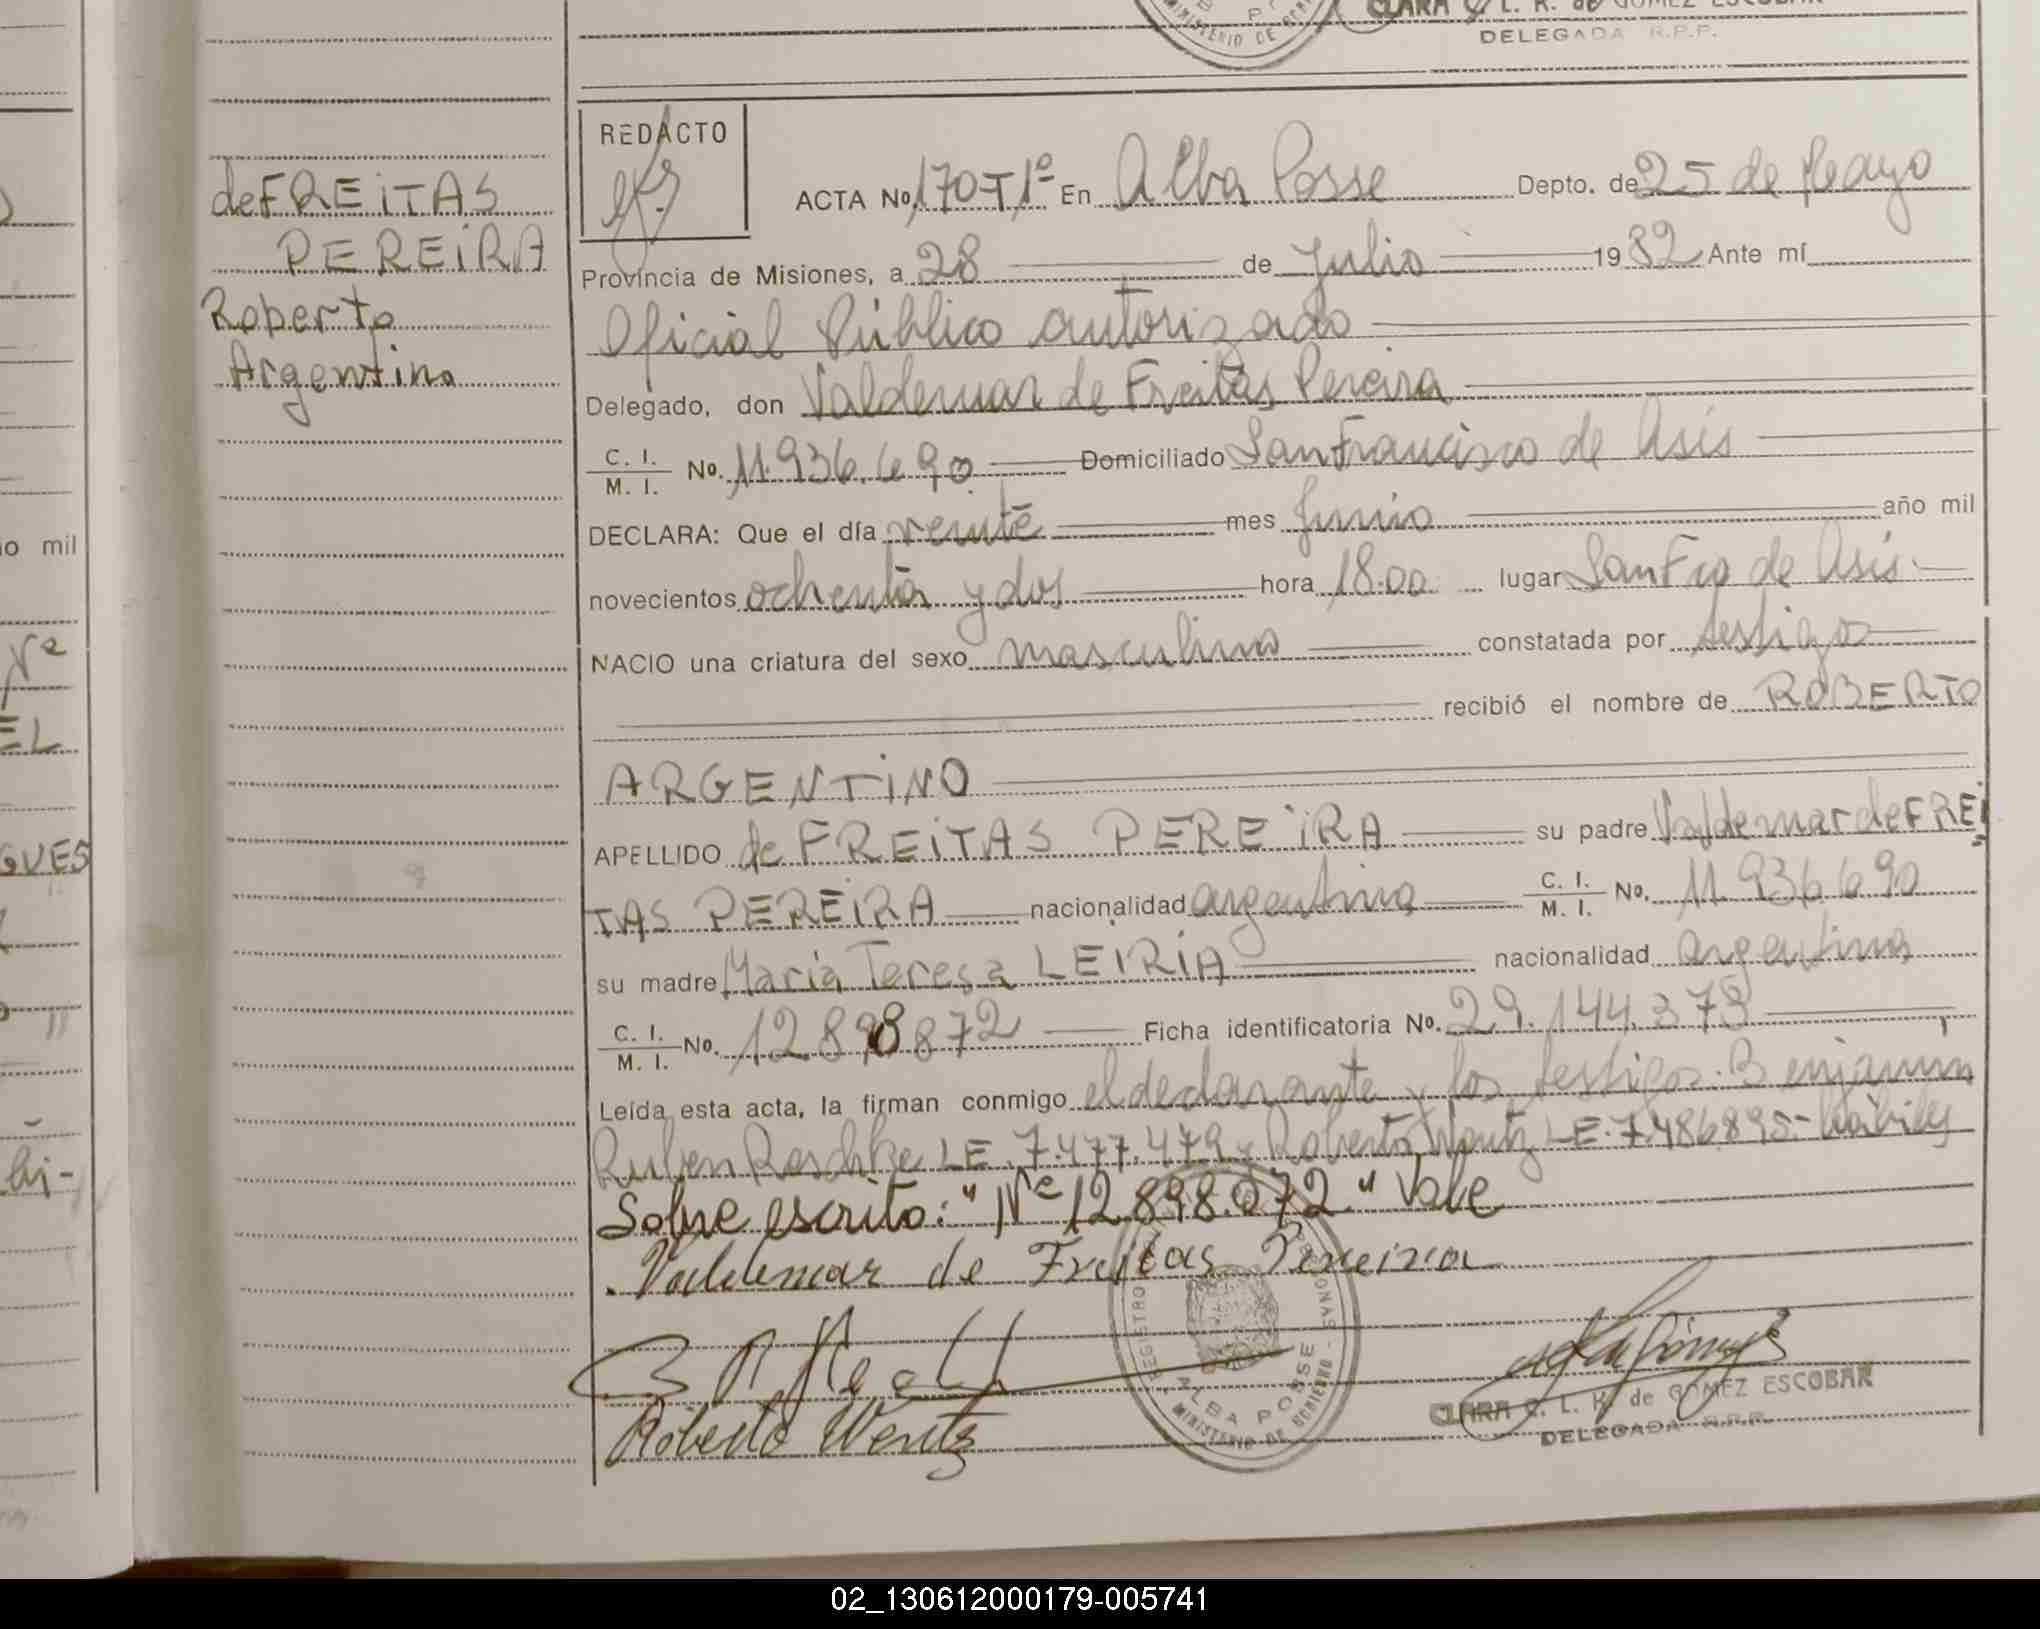 CLARA C. L. K. de GOMEZ ESCOBAR
DELEGADA R.P.P.
MINISTERIO DE
de FREITAS
PEREIRA
Roberto
Argentino
REDACTO
ACTA No. 170-T1º En Alba Posse Depto. de 25 de Mayo
Provincia de Misiones, a 28 de Julio 1982 Ante mí
Oficial Público autorizado
Delegado, don Valdemar de Freitas Pereira
C. I. / M. I. No. 11.936.690 Domiciliado San Francisco de Asis
DECLARA: Que el día veinte mes Junio año mil
novecientos ochenta y dos hora 18.00 lugar San Fco de Asis.
NACIO una criatura del sexo masculino constatada por testigos
recibió el nombre de ROBERTO
ARGENTINO
APELLIDO de FREITAS PEREIRA su padre Valdemar de FREI
TAS PEREIRA nacionalidad argentina C. I. / M. I. No. 11.936.690
su madre Maria Teresa LEIRIA nacionalidad argentina
C. I. / M. I. No. 12898872 Ficha identificatoria No. 29.144.373
Leída esta acta, la firman conmigo el declarante y los testigos. Benjamin
Ruben Raschke LE. 7.477.479 y Roberto Wentz LE. 7.486.895.-
Sobre escrito: "Nº 12.898.872" Vale
Valdemar de Freitas Pereira
Roberto Wentz
REGISTRO
ALBA POSSE
MINISTERIO DE GOBIERNO
CLARA C. L. K. de GOMEZ ESCOBAR
DELEGADA R.P.P.
o mil
Nº
EL
GUES
02_130612000179-005741